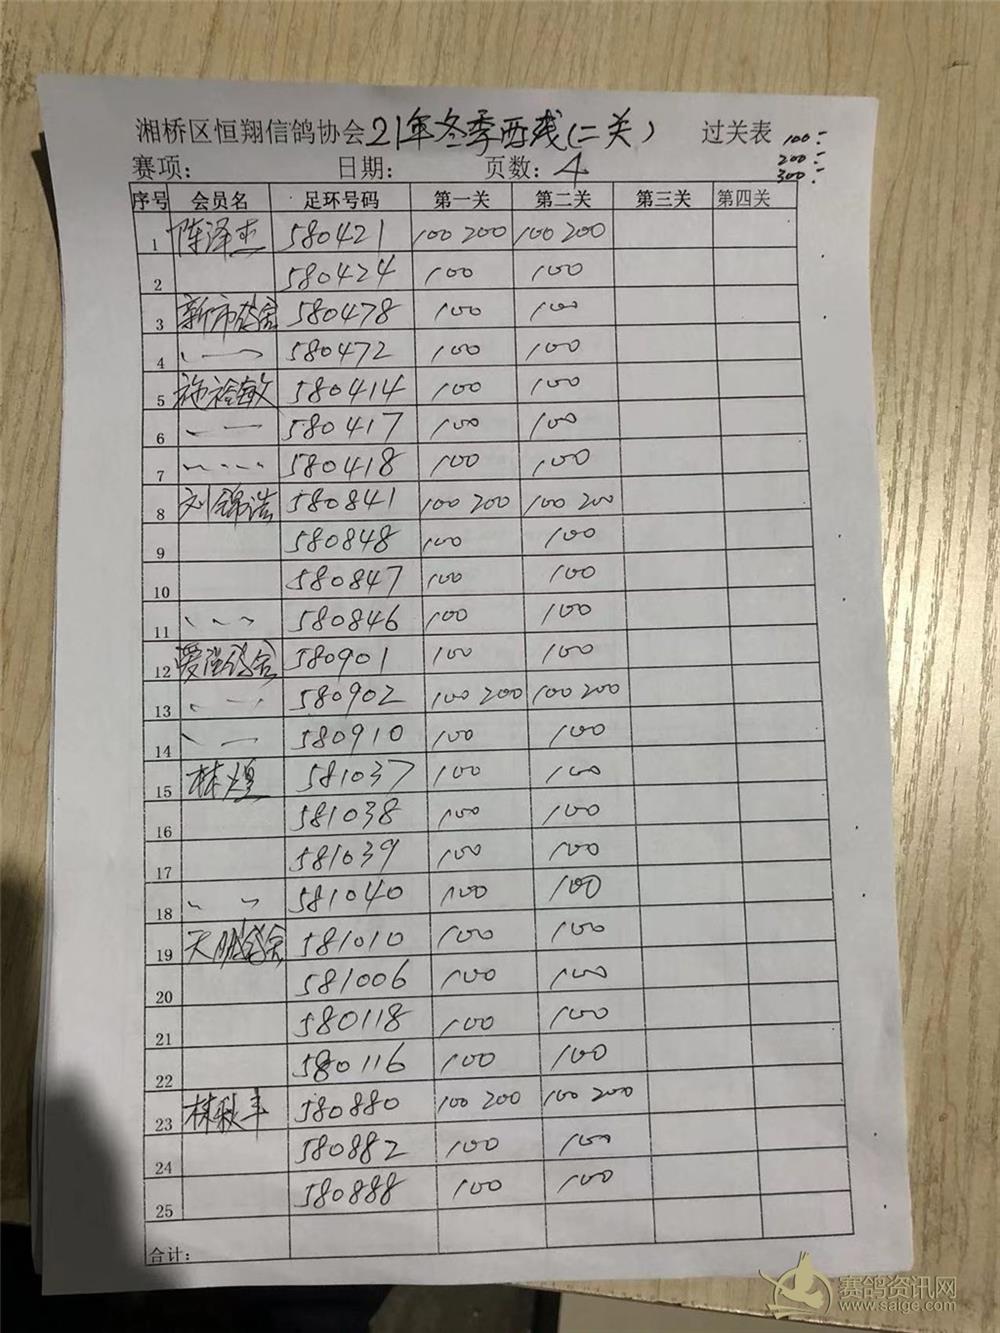 湘桥区恒翔信鸽协会21年冬季西线(二关) 过关表 100:-
200:-
300:-
赛项: 日期: 页数: 4
序号 会员名 足环号码 第一关 第二关 第三关 第四关
1 陈泽杰 580421 100 200 100 200
2 580424 100 100
3 新市鸽舍 580478 100 100
4 580472 100 100
5 580414 100 100
6 580417 100 100
7 580418 100 100
8 刘锦浩 580841 100 200 100 200
9 580848 100 100
10 580847 100 100
11 580846 100 100
12 爱强鸽舍 580901 100 100
13 580902 100 200 100 200
14 580910 100 100
15 林煌 581037 100 100
16 581038 100 100
17 581039 100 100
18 581040 100 100
19 天鹏鸽舍 581010 100 100
20 581006 100 100
21 580118 100 100
22 580116 100 100
23 林秋丰 580880 100 200 100 200
24 580882 100 100
25 580888 100 100
合计:
赛鸽资讯网
www.saige.com